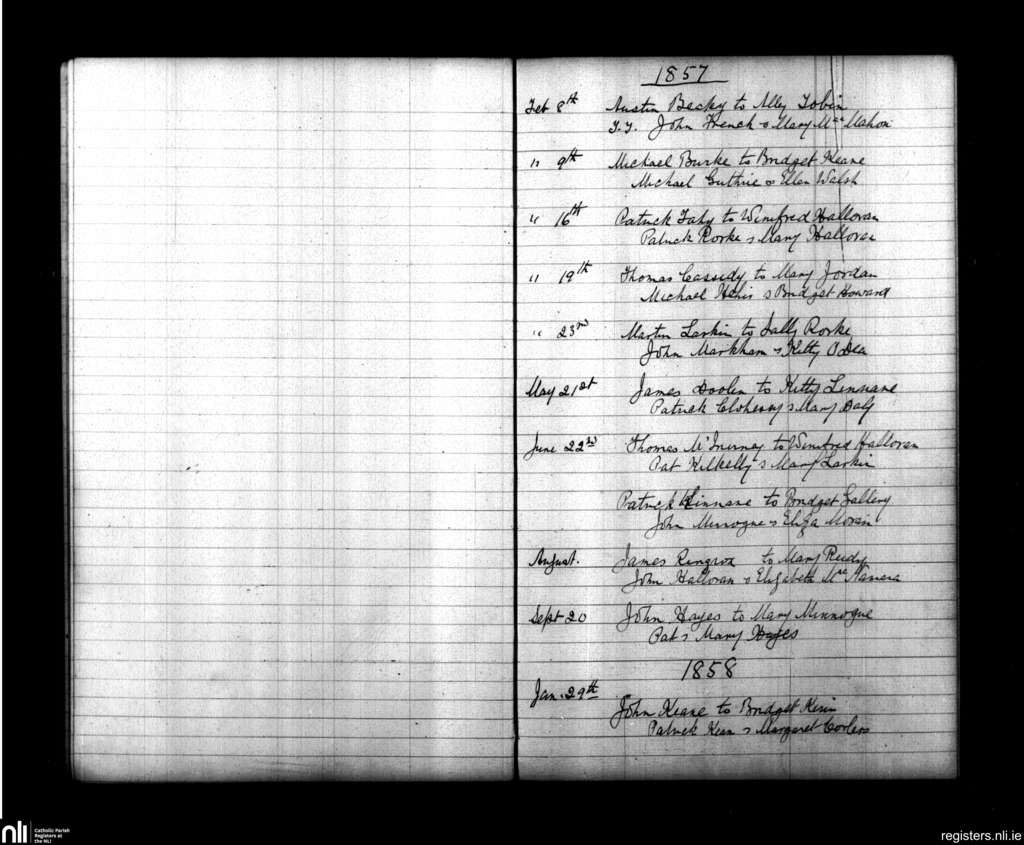 1857
Feb 8th Austin Becky to Alley Tobin
T.T. John French & Mary Mac Mahon
" 9th Michael Burke to Bridget Keane
Michael Guthrie & Ellen Walsh
" 16th Patrick Fahy to Winifred Halloran
Patrick Rorke & Mary Halloran
" 19th Thomas Cassidy to Mary Jordan
Michael & Bridget Howard
" 23rd Martin Larkin to Sally Rorke
John Markham & Kitty O'Dea
May 21st James Doolin to Kitty Linnane
Patrick Cloherry & Mary Daly
June 22nd Thomas McInerney to Winifred Halloran
Pat Kilkelly & Mary Larkin
Patrick Linnane to Bridget Gallery
John Minogue & Eliza Moran
August. James Ringrox to Mary Reidy
John Halloran & Elizabeth Mac
Sept 20 John Hayes to Mary Minnogue
Pat & Mary Hayes
1858
Jan. 29th
John Keane to Bridget
Patrick Kean & Margaret
nli Catholic Parish
Registers at
the NLI
registers.nli.ie